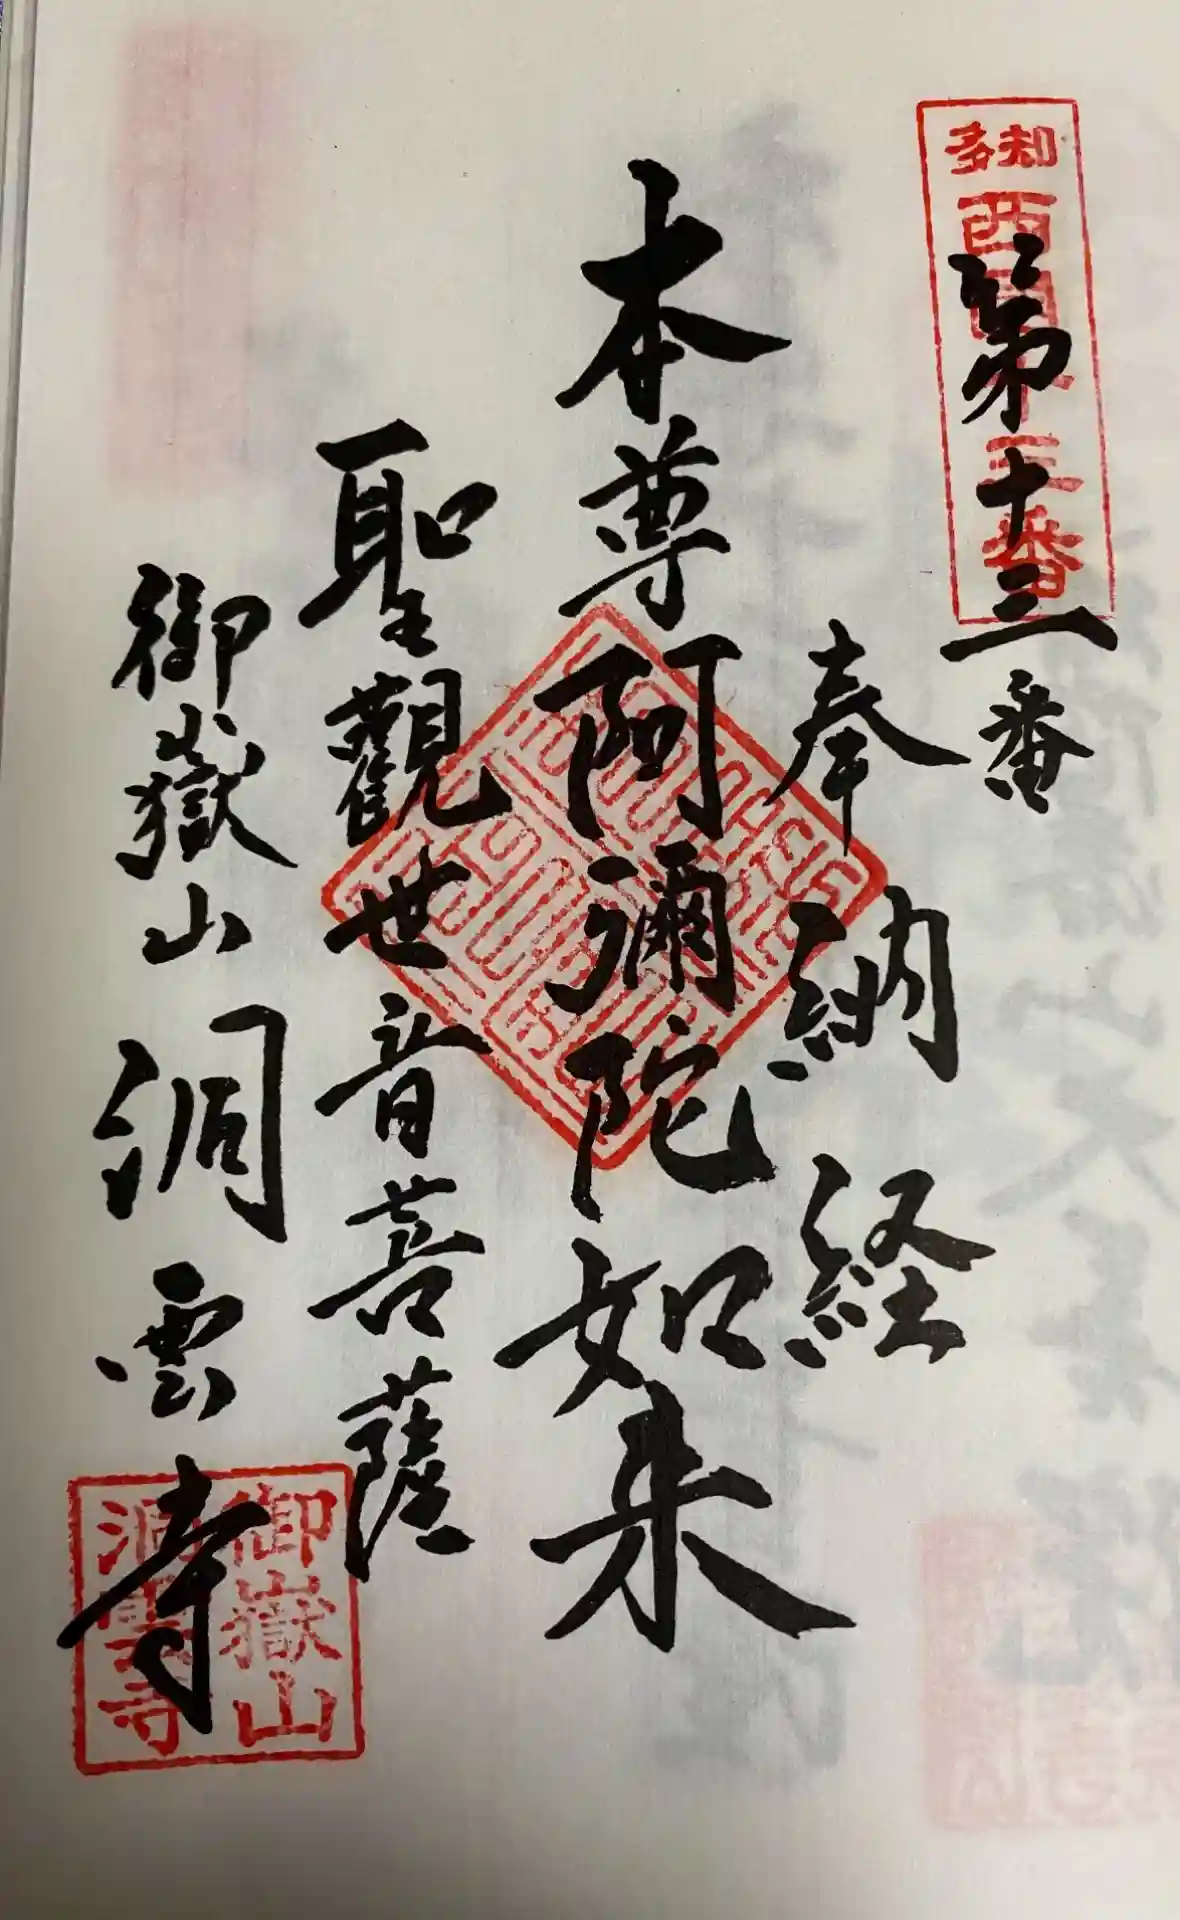 知多
西国十三番
第十三番
奉納経
本尊阿彌陀如来
聖觀世音菩薩
御嶽山洞雲寺
御嶽山
洞雲寺